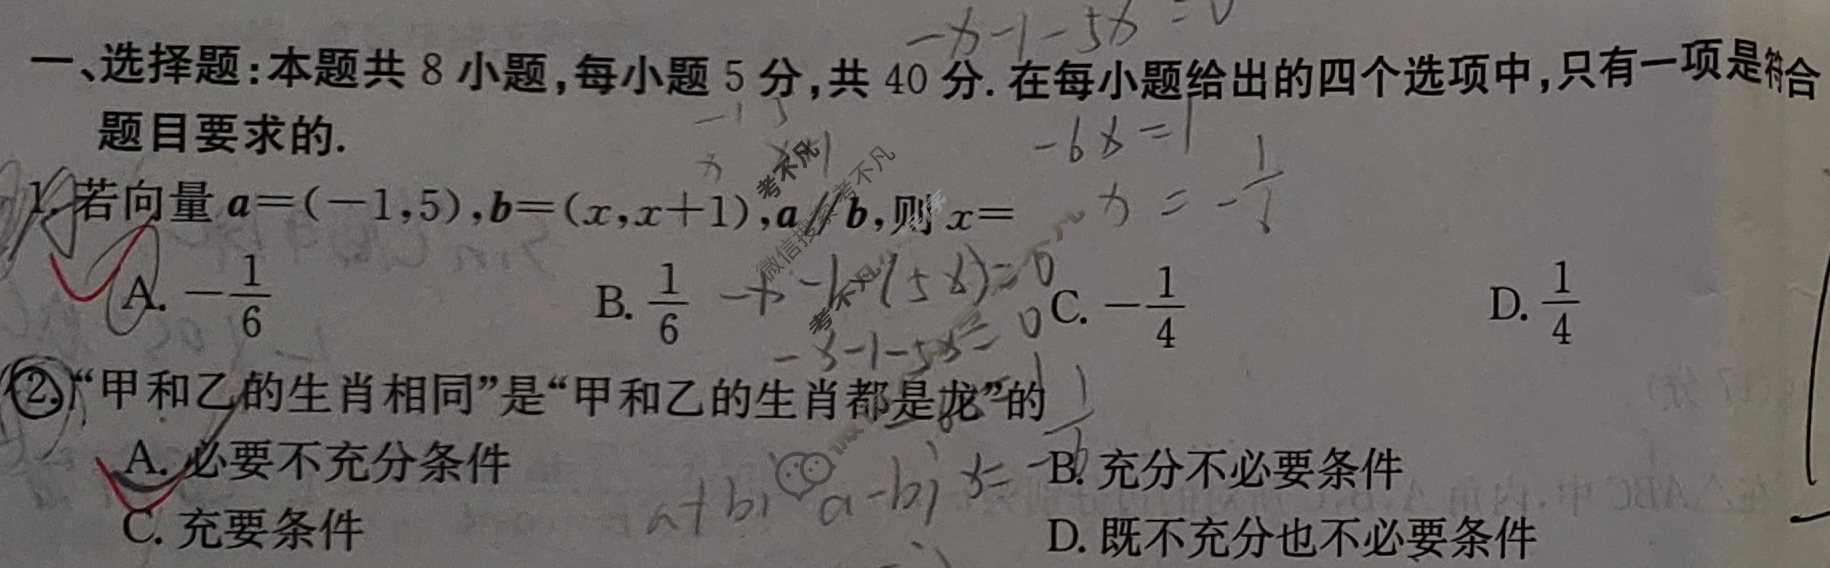 -x-1-5x=0
一、选择题:本题共 8 小题,每小题 5 分,共 40 分. 在每小题给出的四个选项中,只有一项是符合
题目要求的.
-1 5
x x+1
-6x=1
1. 若向量 a=(-1,5),b=(x,x+1),a//b,则 x=
x=-1/6
A. -1/6 B. 1/6 C. -1/4 D. 1/4
-x-1-(5x)=0
-x-1-5x=0
2. “甲和乙的生肖相同”是“甲和乙的生肖都是龙”的
A. 必要不充分条件 B. 充分不必要条件
a+bi a-bi
C. 充要条件 D. 既不充分也不必要条件
考不凡
考不凡
考不凡